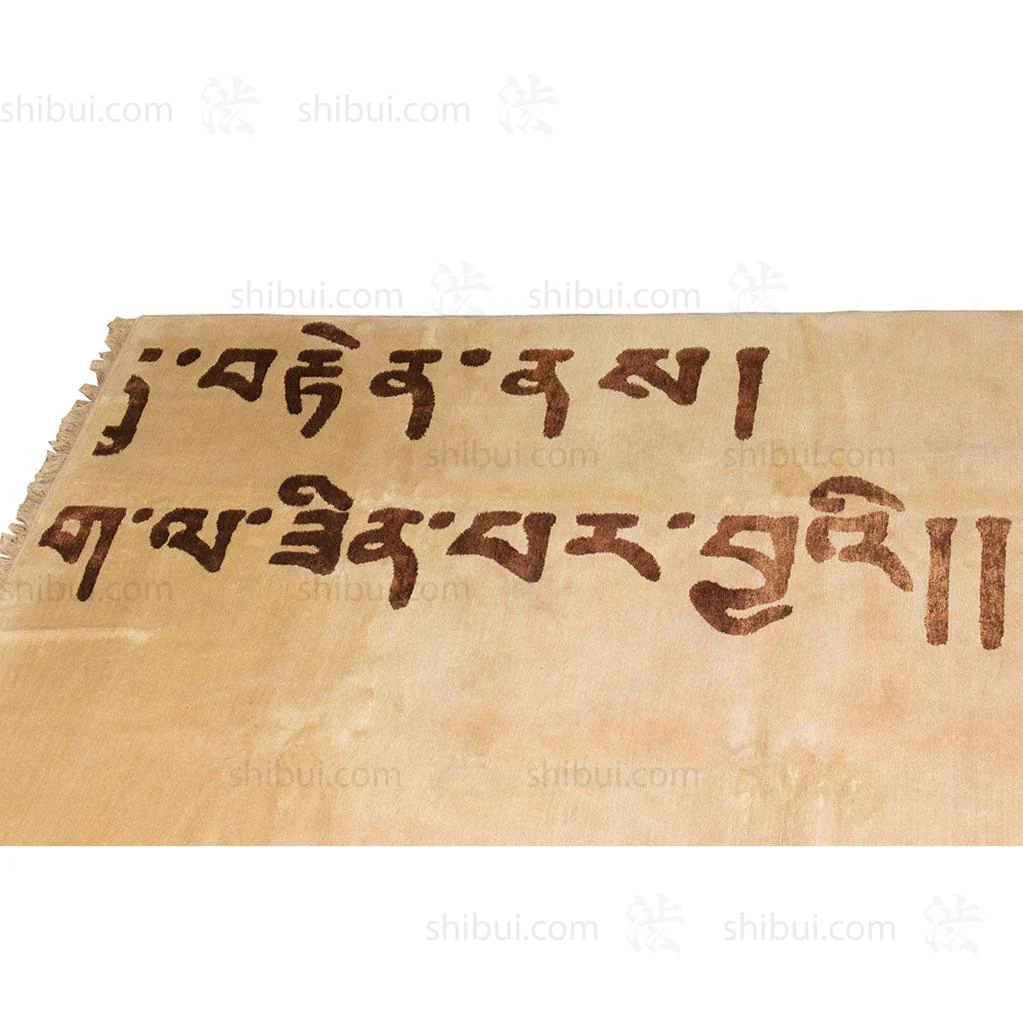 shibui.com 渋 shibui.com 渋
shibui.com 渋 shibui.com 渋
བརྟེན་ནས།
shibui.com 渋 shibui.com 渋
ག་ལ་ཟིན་པར་བྱའི༎
shibui.com 渋 shibui.com 渋
shibui.com 渋 shibui.com 渋
shibui.com 渋 shibui.com 渋